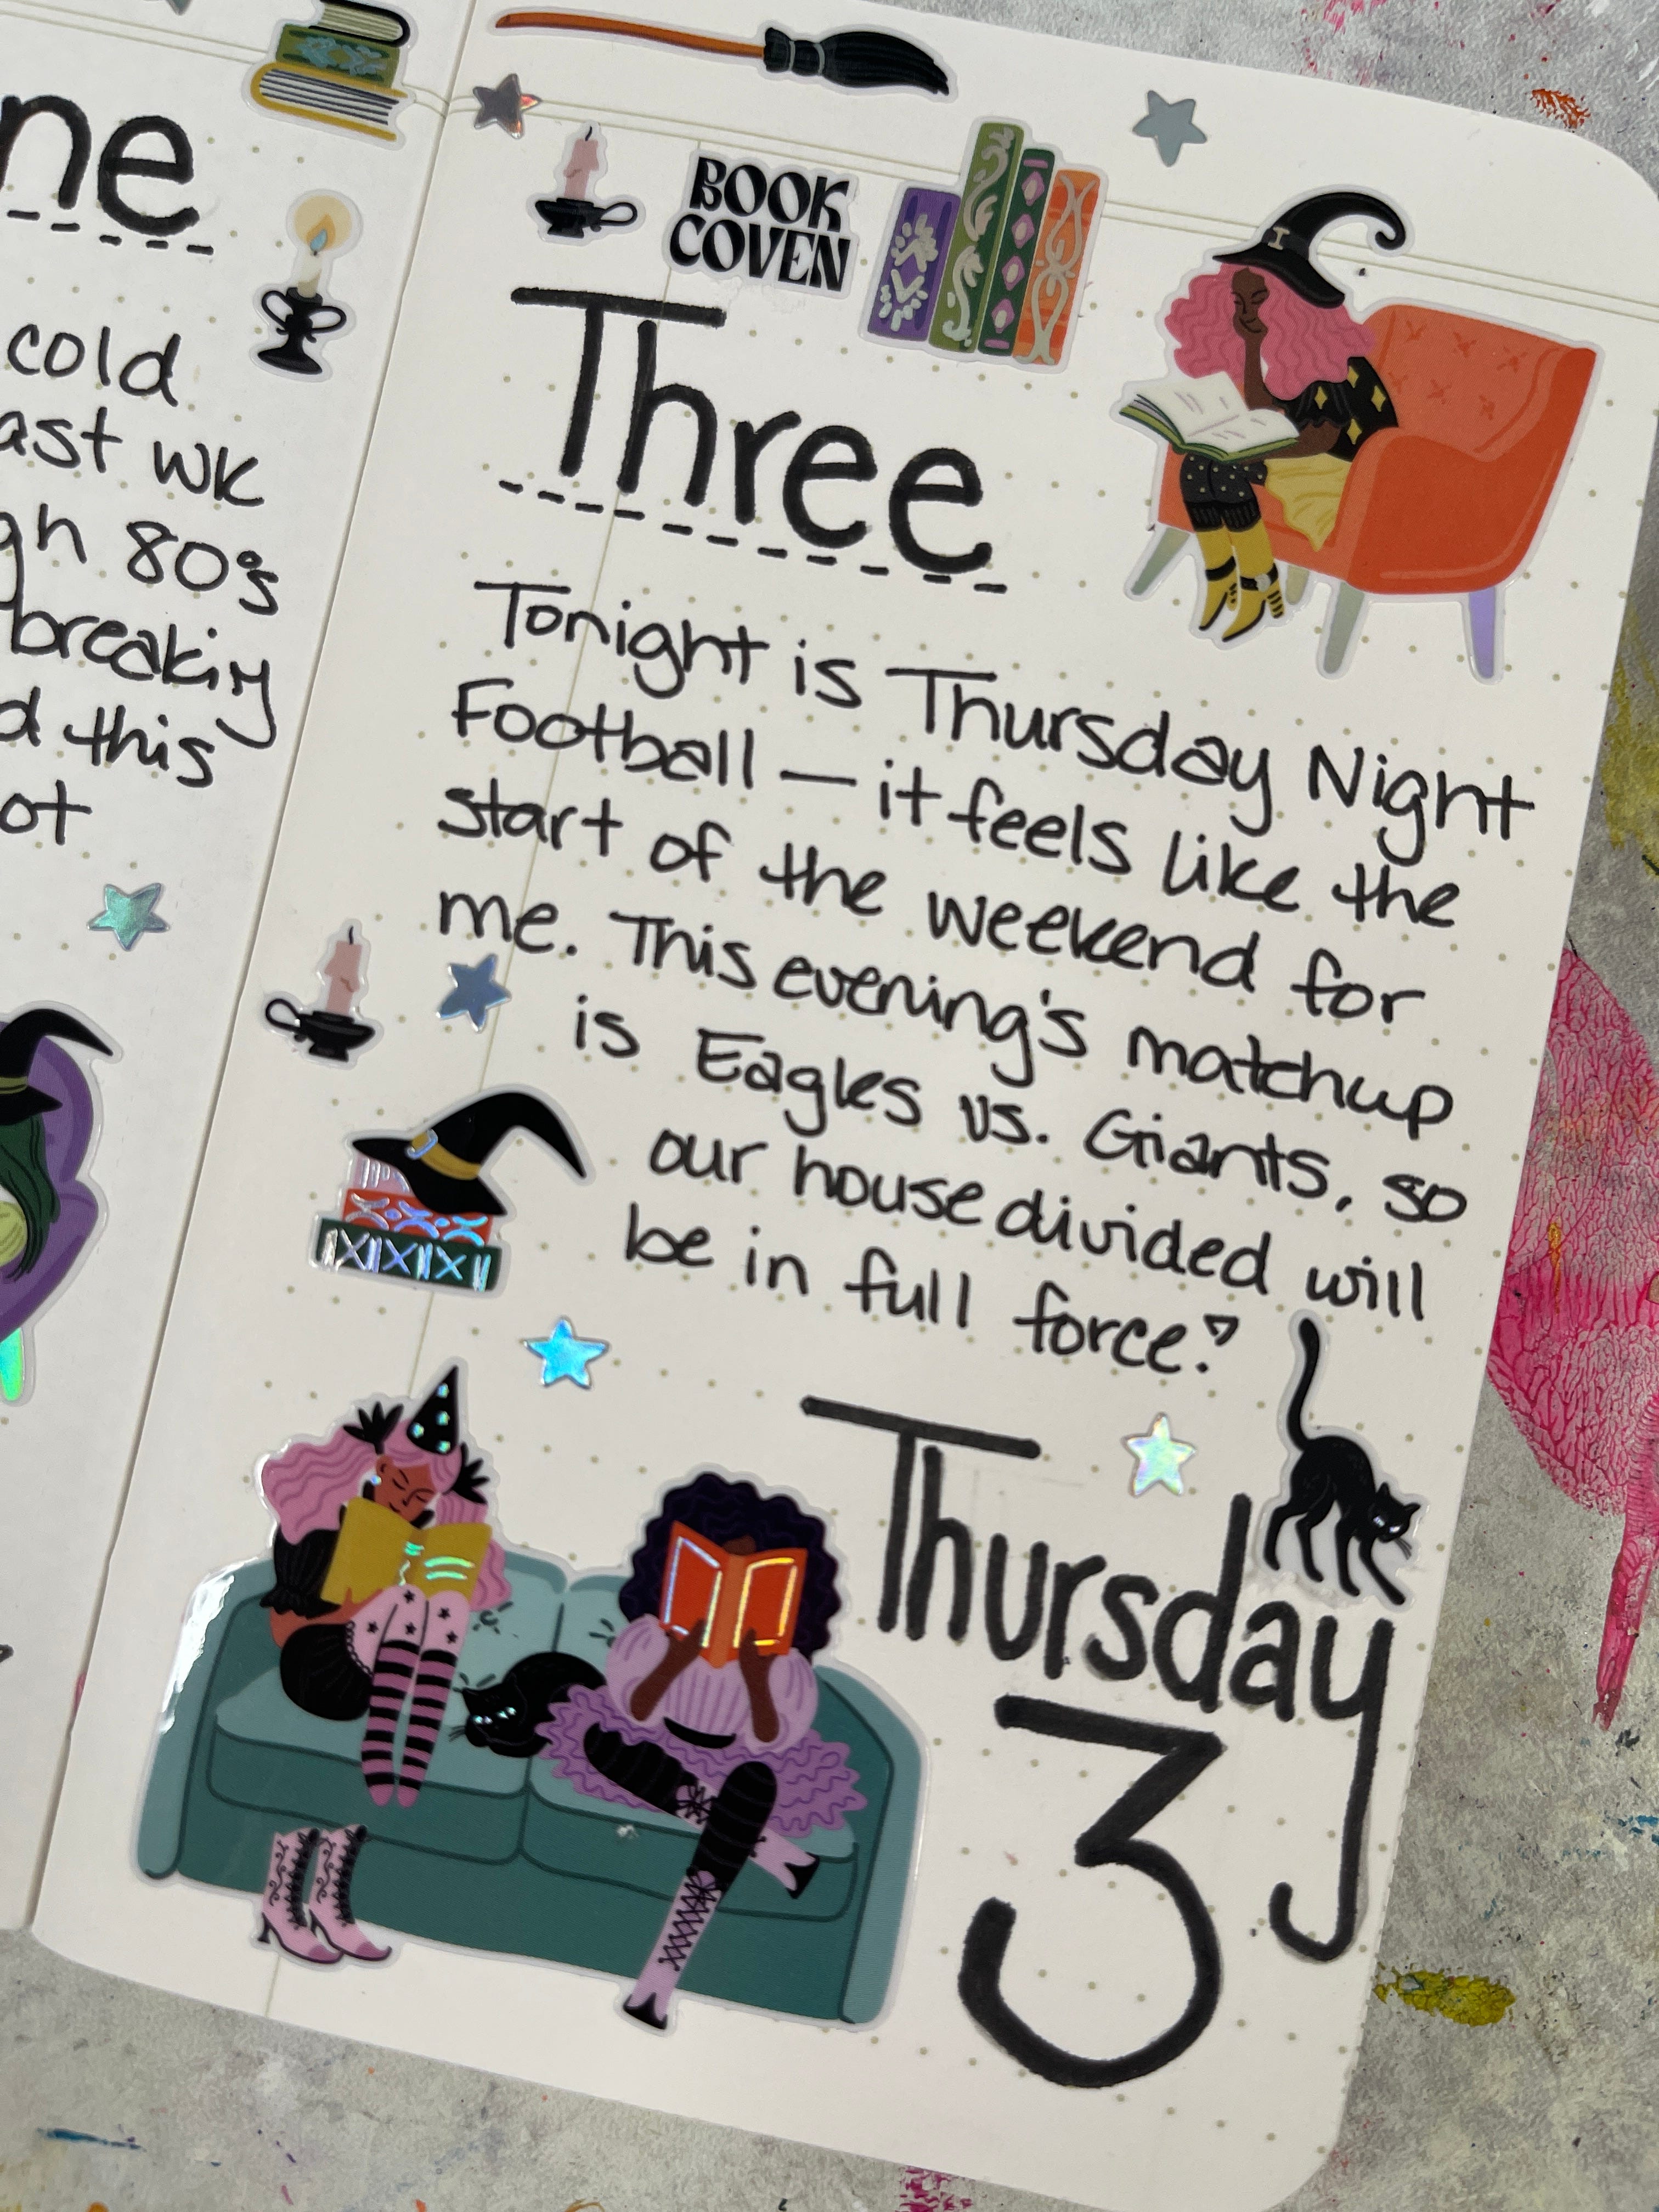 ne
cold
ast wk
gh 80's
breaking
d this
ot
BOOK
COVEN
Three
Tonight is Thursday Night
Football — it feels like the
start of the weekend for
me. This evening's matchup
is Eagles vs. Giants, so
our house divided will
be in full force!
Thursday
3